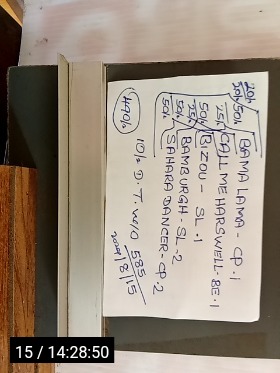 20/. BAMA LAMA - CP.1
50/. 50/.
75/. CALL ME HARSWELL - BE.1
50/. BIZOU - SL.1
75/.
50/. BAMBURGH - SL.2
50/. SAHARA DANCER - CP.2
10/2 D.T. W/O 585
15 / 14:28:50